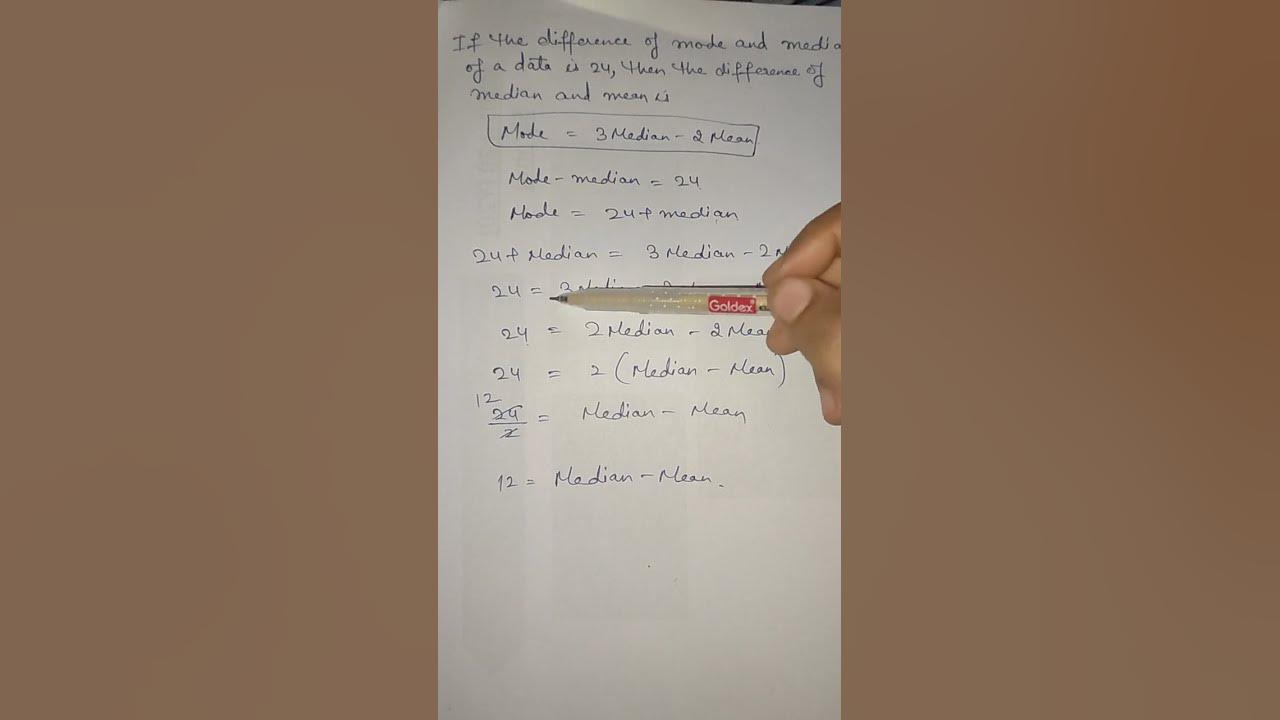 If the difference of mode and media
of a data is 24, then the difference of
median and mean is
Mode = 3 Median - 2 Mean
Mode - median = 24
Mode = 24 + median
24 + Median = 3 Median - 2 M
24 =
Goldex
24 = 2 Median - 2 Mean
24 = 2 (Median - Mean)
12
24 = Median - Mean
2
12 = Median - Mean.